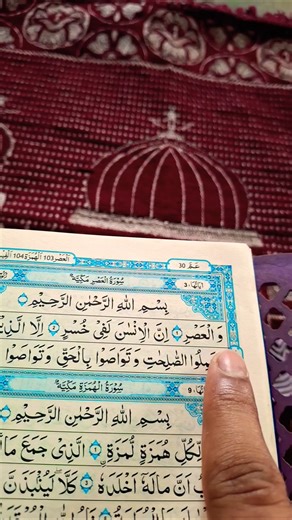 العصر 103 الهمزة 104 الف
عم 30
سورة العصر مكية
اياتها 3
بسم الله الرحمن الرحيم
والعصر ١ ان الانسن لفى خسر ٢ الا الذين
الصلحت وتواصوا بالحق وتواصوا
سورة الهمزة مكية
9
بسم الله الرحمن الرحيم
لكل همزة لمزة ١ الذى جمع مال
ان ماله اخلده ٣ كلا لينبذن